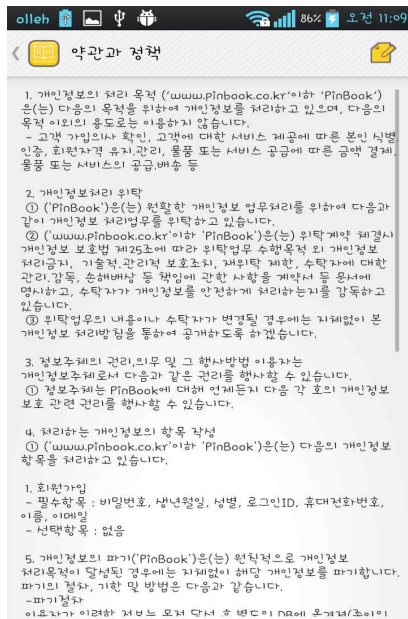 olleh 86% 오전 11:09
약관과 정책
1. 개인정보의 처리 목적 ('www.pinbook.co.kr'이하 'PinBook')
은(는) 다음의 목적을 위하여 개인정보를 처리하고 있으며, 다음의
목적 이외의 용도로는 이용하지 않습니다.
- 고객 가입의사 확인, 고객에 대한 서비스 제공에 따른 본인 식별.
인증, 회원자격 유지.관리, 물품 또는 서비스 공급에 따른 금액 결제,
물품 또는 서비스의 공급.배송 등
2. 개인정보처리 위탁
① ('PinBook')은(는) 원활한 개인정보 업무처리를 위하여 다음과
같이 개인정보 처리업무를 위탁하고 있습니다.
② ('www.pinbook.co.kr'이하 'PinBook')은(는) 위탁계약 체결시
개인정보 보호법 제25조에 따라 위탁업무 수행목적 외 개인정보
처리금지, 기술적.관리적 보호조치, 재위탁 제한, 수탁자에 대한
관리.감독, 손해배상 등 책임에 관한 사항을 계약서 등 문서에
명시하고, 수탁자가 개인정보를 안전하게 처리하는지를 감독하고
있습니다.
③ 위탁업무의 내용이나 수탁자가 변경될 경우에는 지체없이 본
개인정보 처리방침을 통하여 공개하도록 하겠습니다.
3. 정보주체의 권리,의무 및 그 행사방법 이용자는
개인정보주체로서 다음과 같은 권리를 행사할 수 있습니다.
① 정보주체는 PinBook에 대해 언제든지 다음 각 호의 개인정보
보호 관련 권리를 행사할 수 있습니다.
4. 처리하는 개인정보의 항목 작성
① ('www.pinbook.co.kr'이하 'PinBook')은(는) 다음의 개인정보
항목을 처리하고 있습니다.
1. 회원가입
- 필수항목 : 비밀번호, 생년월일, 성별, 로그인ID, 휴대전화번호,
이름, 이메일
- 선택항목 : 없음
5. 개인정보의 파기('PinBook')은(는) 원칙적으로 개인정보
처리목적이 달성된 경우에는 지체없이 해당 개인정보를 파기합니다.
파기의 절차, 기한 및 방법은 다음과 같습니다.
-파기절차
이용자가 입력한 정보는 목적 달성 후 별도의 DB에 옮겨져(종이의